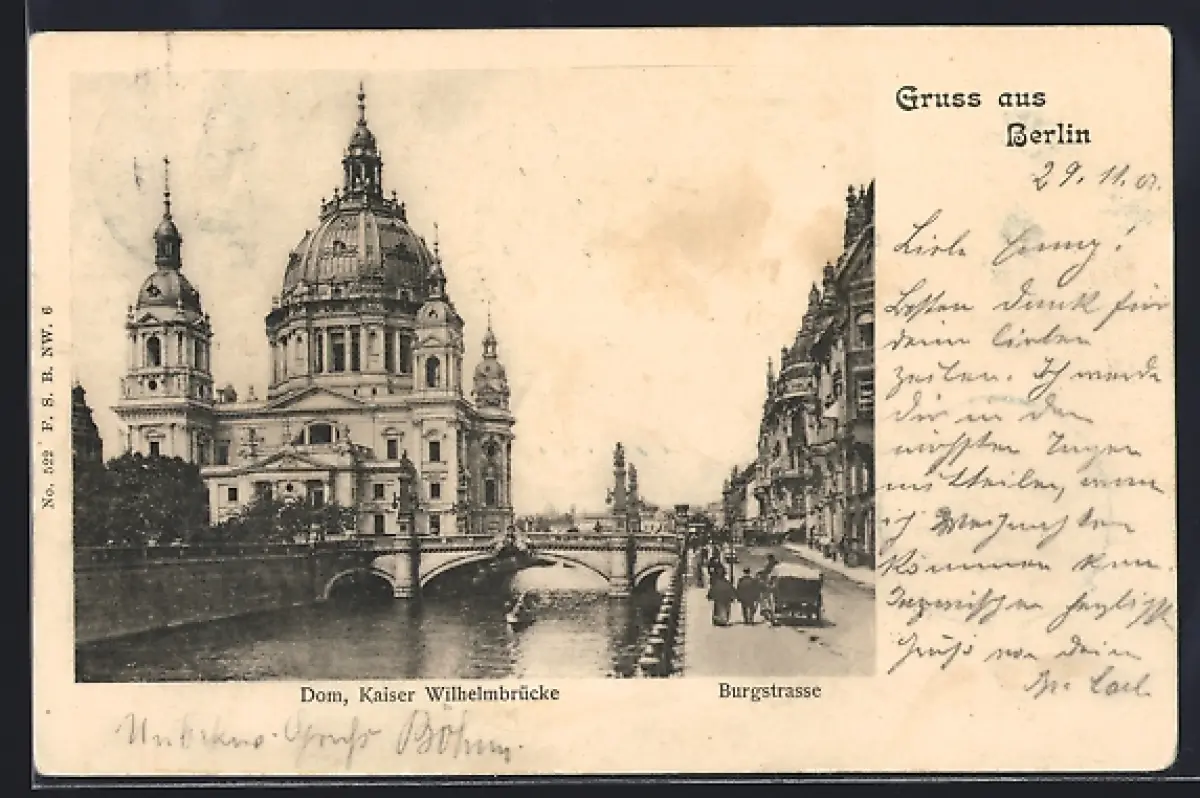 Gruss aus
Berlin
29. 11. 01.
Liebe !
Besten Dank für
deine lieben
Zeilen. Ich werde
dir in den
nächsten Tagen
mitteilen, wenn
ich Weihnachten
kommen kann.
Inzwischen herzlichste
Grüße von deinem
Carl.
No. 522 F. S. B. NW. 6
Dom, Kaiser Wilhelmbrücke
Burgstrasse
Unbekw. Gruss Böhm.